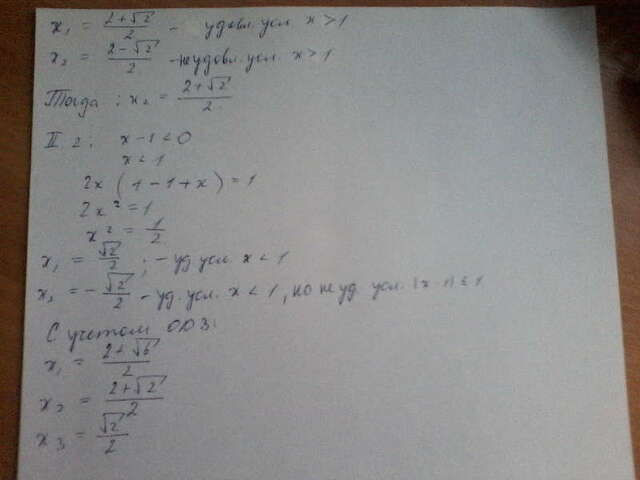 x₁ = (2+√2)/2 - удовл. усл x > 1
x₂ = (2-√2)/2 - не удовл. усл. x > 1
Тогда: x₂ = (2+√2)/2
II 2: x-1<0
x<1
2x(1-1+x)=1
2x²=1
x² = 1/2
x₁ = √2/2; - уд усл. x < 1
x₂ = -√2/2 - уд. усл. x < 1, но не уд. усл. |x-1| ≤ 1
С учетом ОДЗ:
x₁ = (2+√6)/2
x₂ = (2+√2)/2
x₃ = √2/2